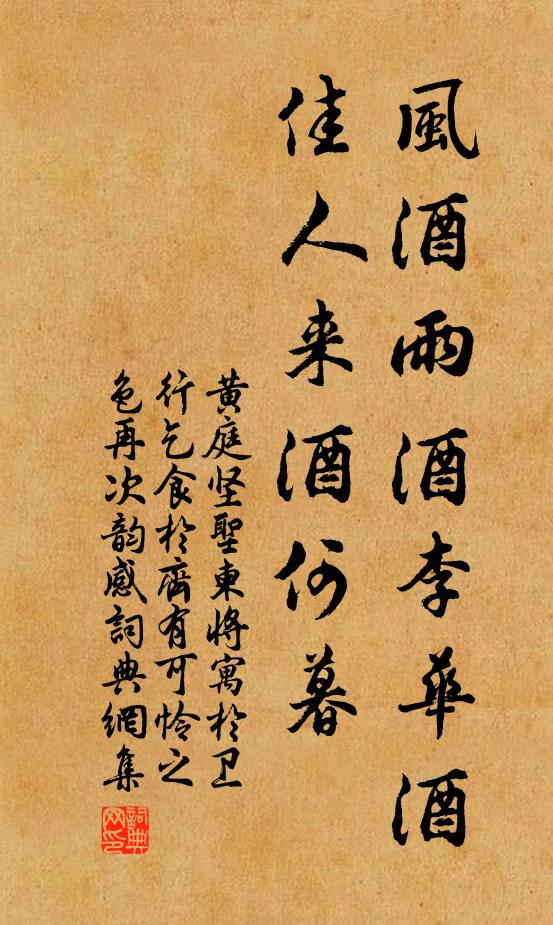 風酒雨酒李華酒
佳人来酒何暮
黄庭坚聖東將寓於卫
行乞食於齊有可怜之
色再次韵感詞典網集
詞典网印